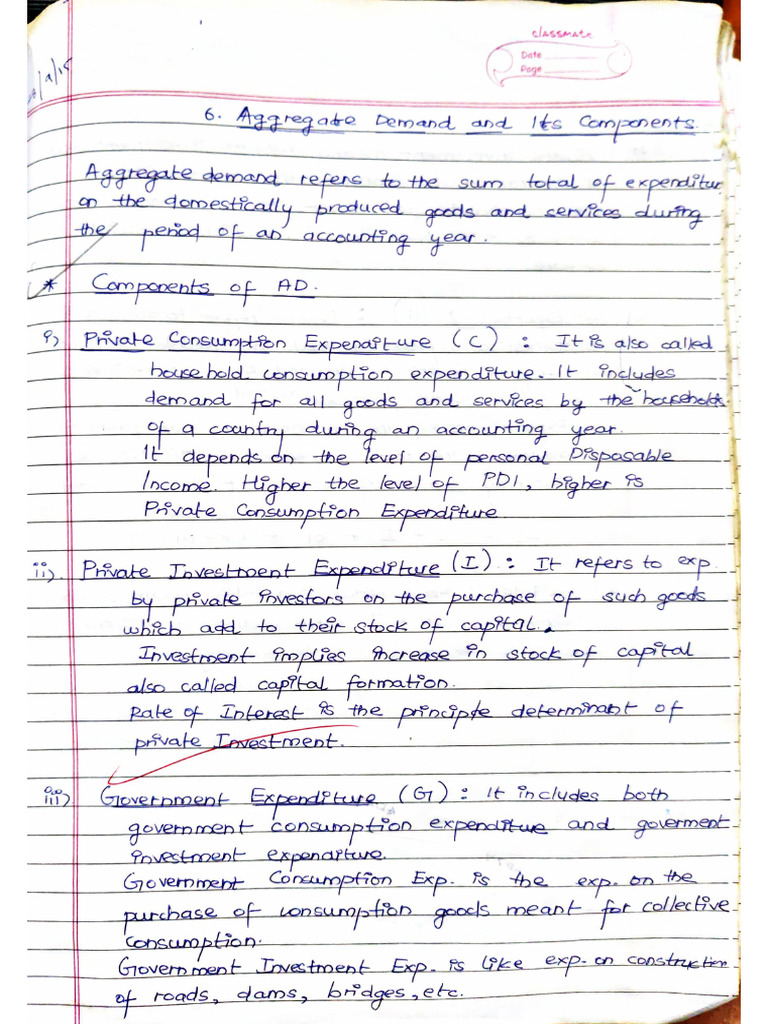 classmate
Date
Page
6. Aggregate Demand and Its Components.
Aggregate demand refers to the sum total of expenditur
on the domestically produced goods and services during
the period of an accounting year.
* Components of AD.
i) Private Consumption Expenditure (C) : It is also called
household consumption expenditure. It includes
demand for all goods and services by the households
of a country during an accounting year.
It depends on the level of personal Disposable
Income. Higher the level of PDI, higher is
Private Consumption Expenditure
ii). Private Investment Expenditure (I) : It refers to exp.
by private investors on the purchase of such goods
which add to their stock of capital.
Investment implies increase in stock of capital
also called capital formation.
Rate of Interest is the principle determinant of
private Investment.
iii) Government Expenditure (G) : It includes both
government consumption expenditue and goverment
investment expenditure.
Government Consumption Exp. is the exp. on the
purchase of consumption goods meant for collective
consumption.
Government Investment Exp. is like exp. on construction
of roads, dams, bridges, etc.